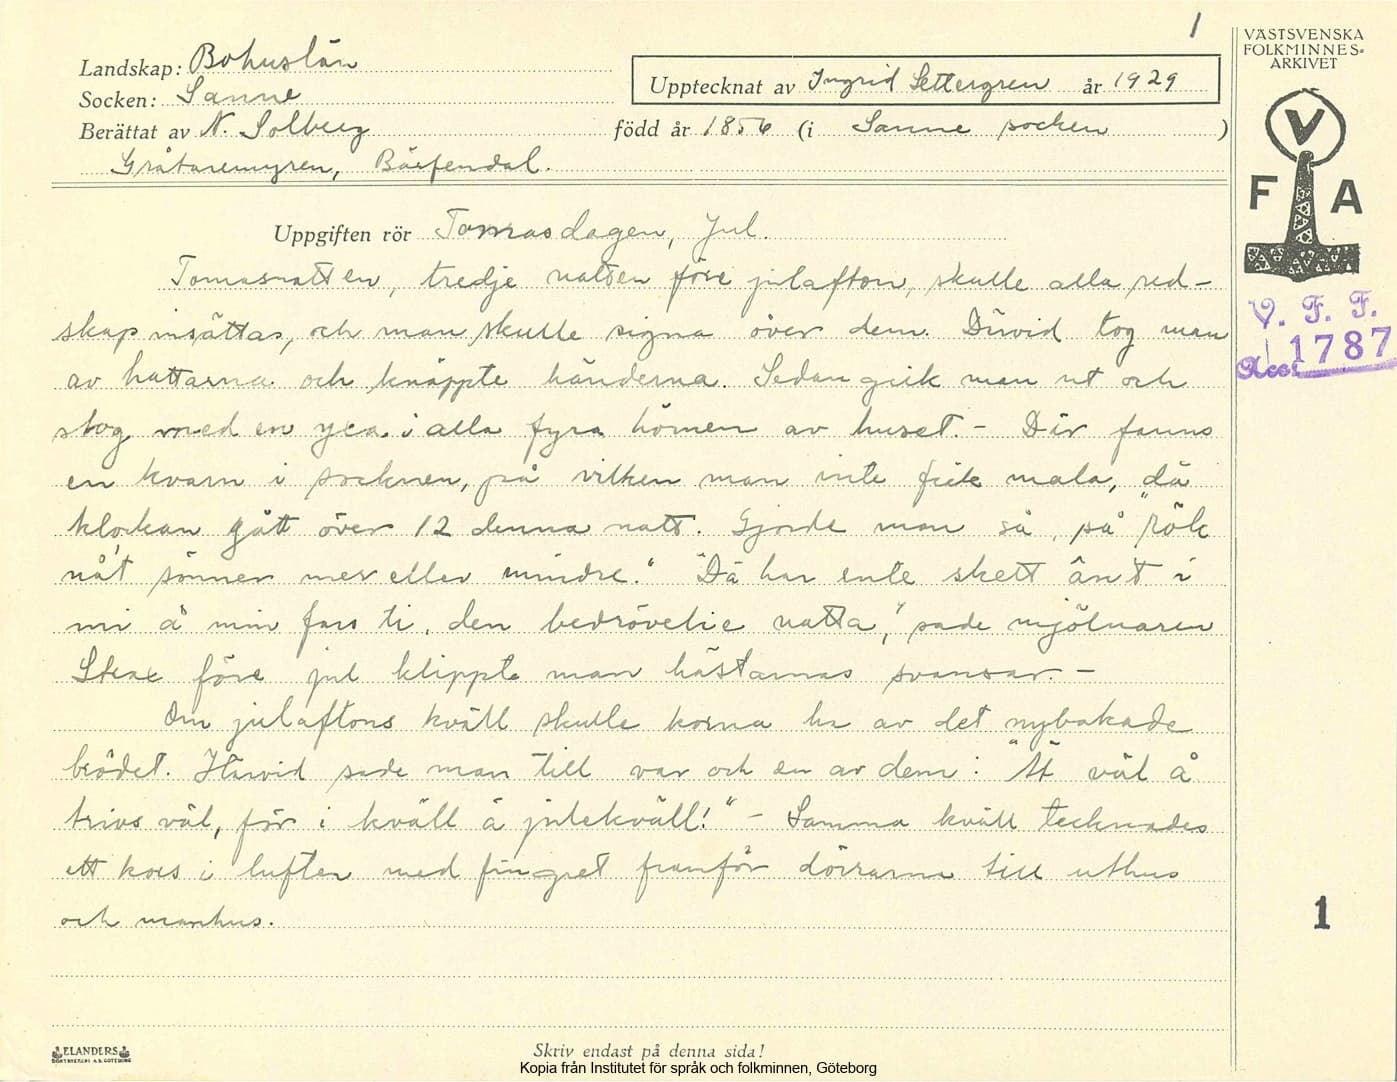 1
VÄSTSVENSKA
FOLKMINNES-
ARKIVET
Landskap: Bohuslän
Socken: Sanne
Upptecknat av Ingrid Settergren år 1929
Berättat av N. Solberg född år 1856 (i Sanne socken )
Gråtaremyren, Bärfendal.
V
F A
Uppgiften rör Tomasdagen, Jul.
Tomasnatten, tredje natten före julafton, skulle alla red-
skap insättas, och man skulle signa över dem. Därvid tog man
av hattarna och knäppte händerna. Sedan gick man ut och
stog med en yxa i alla fyra hörnen av huset. - Där fanns
en kvarn i socknen, på vilken man inte fick mala, då
klockan gått över 12 denna natt. Gjorde man så, på "rök
nåt sönner mer eller mindre." "Dä har ente skett ânt i
mi å min fars ti, den bedrövelie natta," sade mjölnaren
Strax före jul klippte man hästarnas svansar. -
Om julaftons kväll skulle korna ha av det nybakade
brödet. Härvid sade man till var och en av dem: "Ät väl å
trivs väl, för i kväll ä julekväll!" - Samma kväll tecknades
ett kors i luften med fingret framför dörrarna till uthus
och manhus.
V. F. F.
Acc. 1787
1
ELANDERS
BOKTRYCKERI A.B. GÖTEBORG
Skriv endast på denna sida!
Kopia från Institutet för språk och folkminnen, Göteborg